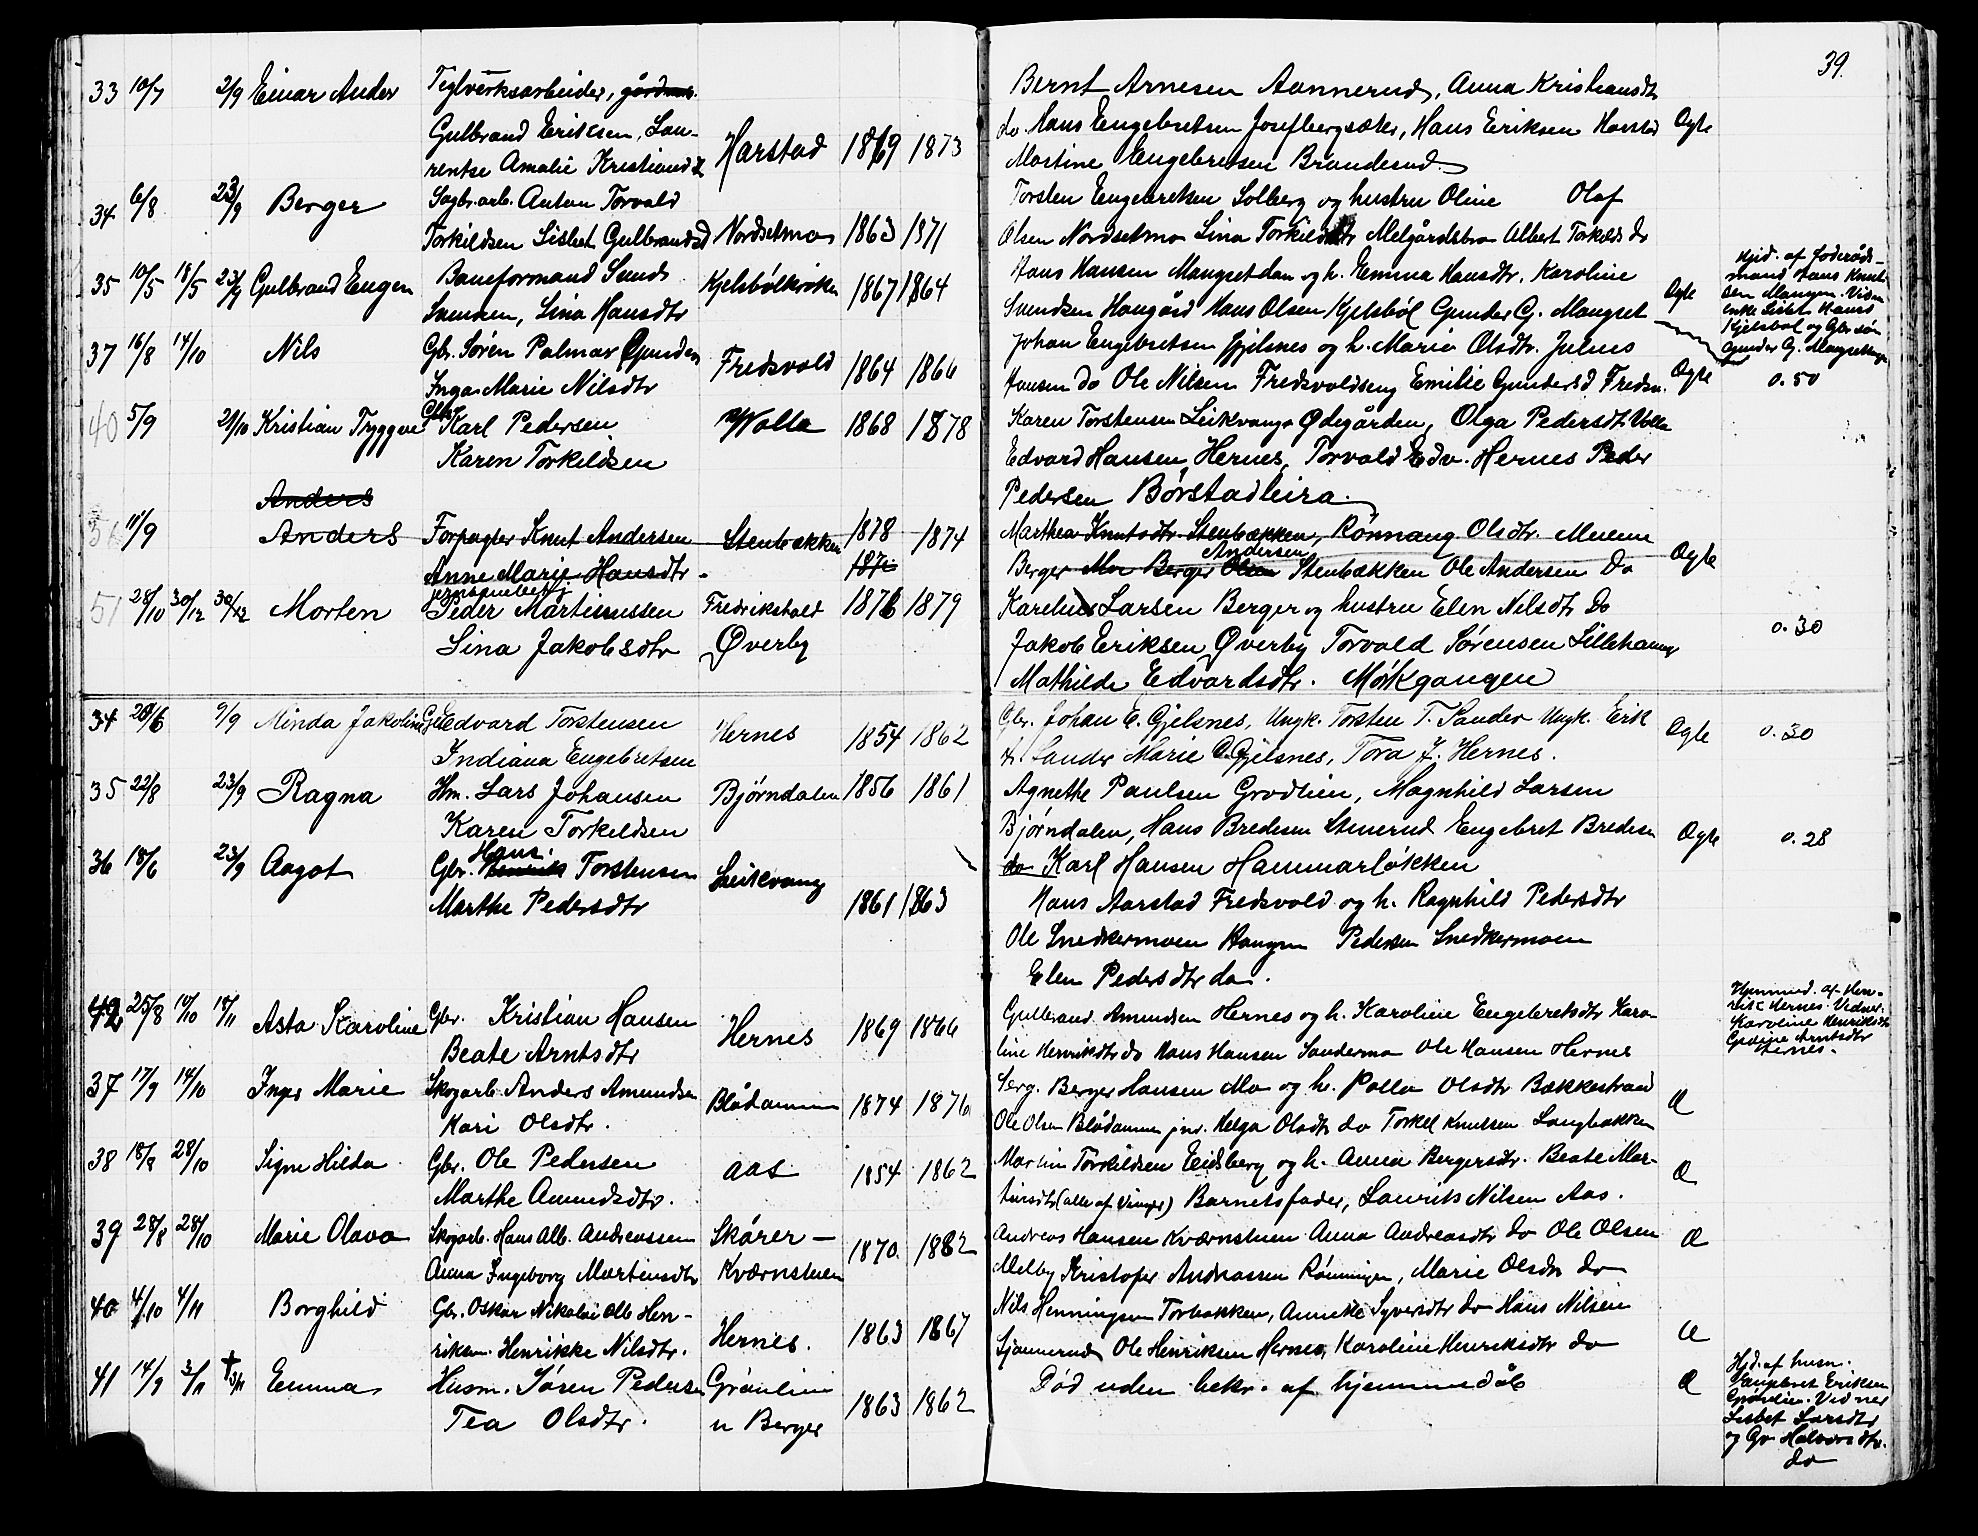 39.
33 10/7 2/9 Einar Ander Teglverksarbeider, gårdm.
Gulbrand Eriksen, Lau-
rentse Amalie Kristiansd Harstad 1869 1873
34 6/8 23/9 Berger Sagbr.arb. Anton Torvald
Torkildsen Lisbet Gulbrandsd Nordsetmo 1863 1871
35 10/5 18/5 23/9 Gulbrand Eugen Baneformand Svend
Svensen, Lina Hansdtr Kjelsbölkroken 1867 1864
37 16/8 14/10 Nils Gbr. Sören Palmar Gundersen
Inga Marie Nilsdtr Fredsvold 1864 1866
40 5/9 21/10 Kristian Tryggve Gbr. Karl Pedersen
Karen Torkildsen Wolla 1868 1878
Anders
56 11/9 Anders Forpagter Knut Andersen
Anne Marie Hansdtr. Stenbækken 1878 1874
1871
51 28/10 30/12 30/12 Morten Peder Martinussen
Lina Jakobsdtr Fredrikshald
Øverby 1876 1879
34 20/6 9/9 Minda Jakoline Gbr Edvard Torstensen
Indiana Engebretsen Hernes 1854 1862
35 22/8 23/9 Ragna Hm. Lars Johansen
Karen Torkildsen Björndalen 1856 1861
36 18/6 23/9 Aagot Gbr. Hans Torstensen
Marthe Pedersdtr Leikvang 1861 1863
42 25/8 10/10 18/11 Asta Karoline Gbr. Kristian Hansen
Beate Arntsdtr Hernes 1869 1866
37 17/9 14/10 Inger Marie Skogarb Anders Amundsen
Kari Olsdtr. Blådammen 1874 1876
38 18/8 28/10 Signe Hilda Gbr. Ole Pedersen
Marthe Amundsdtr. Aas 1854 1862
39 28/8 28/10 Marie Olava Skogarb. Hans Alb. Andreassen
Anna Ingeborg Mortensdtr Skårer-
Kværnstuen 1870 1882
40 4/10 4/11 Borghild Gbr. Oskar Nikolai Alb Hen-
riksen. Henrikke Nilsdtr. Hernes. 1863 1867
41 14/9 3/11 † 3/11 Emma Husm. Sören Pedersen
Tea Olsdtr. Grönlien
u Berger 1863 1862
Bernt Arnesen Aannerud, Anna Kristiansdtr
do Hans Engebretsen Josefbergsæter, Hans Eriksen Harstad
Mostine Engebretsen Branderud Ægte
Torsten Engebretsen Solberg og hustru Oline Olaf
Olsen Nordsetmo Lina Torkildsdtr Melgårdsbra Albert Torkilds do
Hans Hansen Mangsetdam og h. Emma Hansdtr. Karoline
Svendsen Haugård Hans Olsen Kjelsböl Gunder G. Mangset Ægte
Hjd. af Foderåds-
mand Hans Knut-
sen Mangen. Vidn.
enke Lisbet Hans
Kjelsböl og Gbr.sön
Gunder G. Mangset
Johan Engebretsen Gjelsnes og h. Marie Olsdtr. Julius
Hansen do Ole Nilsen Fredsvoldseng Emilie Gundersd Fredsv. Ægte 0.50
Karen Torstensen Leikvang Ødegården, Olga Pedersdtr Volla
Edvard Hansen Hernes, Torvald Edv. Hernes Peder
Pedersen Börstadleira.
Marthea Knutsdtr Stenbækken, Rönnaug Olsdtr. Moen
Berger Moe Berger Olsen Andersen Stenbækken Ole Andersen Do Ægte
Karelius Larsen Berger og hustru Elen Nilsdtr Do
Jakob Eriksen Øverby Torvald Sørensen Lillehammer
Mathilde Edvardsdtr. Mörkgangen 0.30
Gbr. Johan E. Gjelsnes, Ungk. Torsten T. Sander Ungk. Erik
T. Sander Marie C. Gjelsnes, Tora J. Hernes. Ægte 0.30
Agnethe Paulsen Grodlien, Magnhild Larsen
Bjørndalen, Hans Bredesen Stenerud Engebret Bredesen
do Karl Hansen Hammarløkken Ægte 0.28
Hans Aarstad Fredsvold og h. Ragnhild Pedersdtr
Ole Snedkermoen Haugen Pedersen Snedkermoen
Elen Pedersdtr do.
Gulbrand Amundsen Hernes og h. Karoline Engebretsdtr Karo-
line Henriksdtr do Hans Hansen Sandermo Ole Hansen Hernes
Hjemmed. af Hen-
rik Hernes. Vidner.
Karoline Henriksdtr
Gustine Arntsdtr
Hernes.
Serg. Berger Hansen Mo og h. Polla Olsdtr Bækkestrand
Ole Olsen Blådammen jnr. Helga Olsdtr do Torkel Knutsen Langbakken Æ
Martin Torkildsen Eidsberg og h. Anna Bergersdtr. Beate Mar-
tinsdtr (alle af Vinger) Barnets fader, Laurits Nilsen Aas. Æ
Andreas Hansen Kværnstuen Anna Andreasdtr do Ole Olsen
Melby Kristofer Andreassen Rönningen, Marie Olsdtr do Æ
Nils Henningsen Torbakken, Annette Syversdtr do Hans Nilsen
Sjønnerud Ole Henriksen Hernes, Karoline Henriksdtr do Æ
Död uden bekr. af hjemmedåb Æ
Hjd. af husm.
Engebret Eriksen
Grönlien. Vidner
Lisbet Larsdtr
og Gv Halvorsdtr.
do